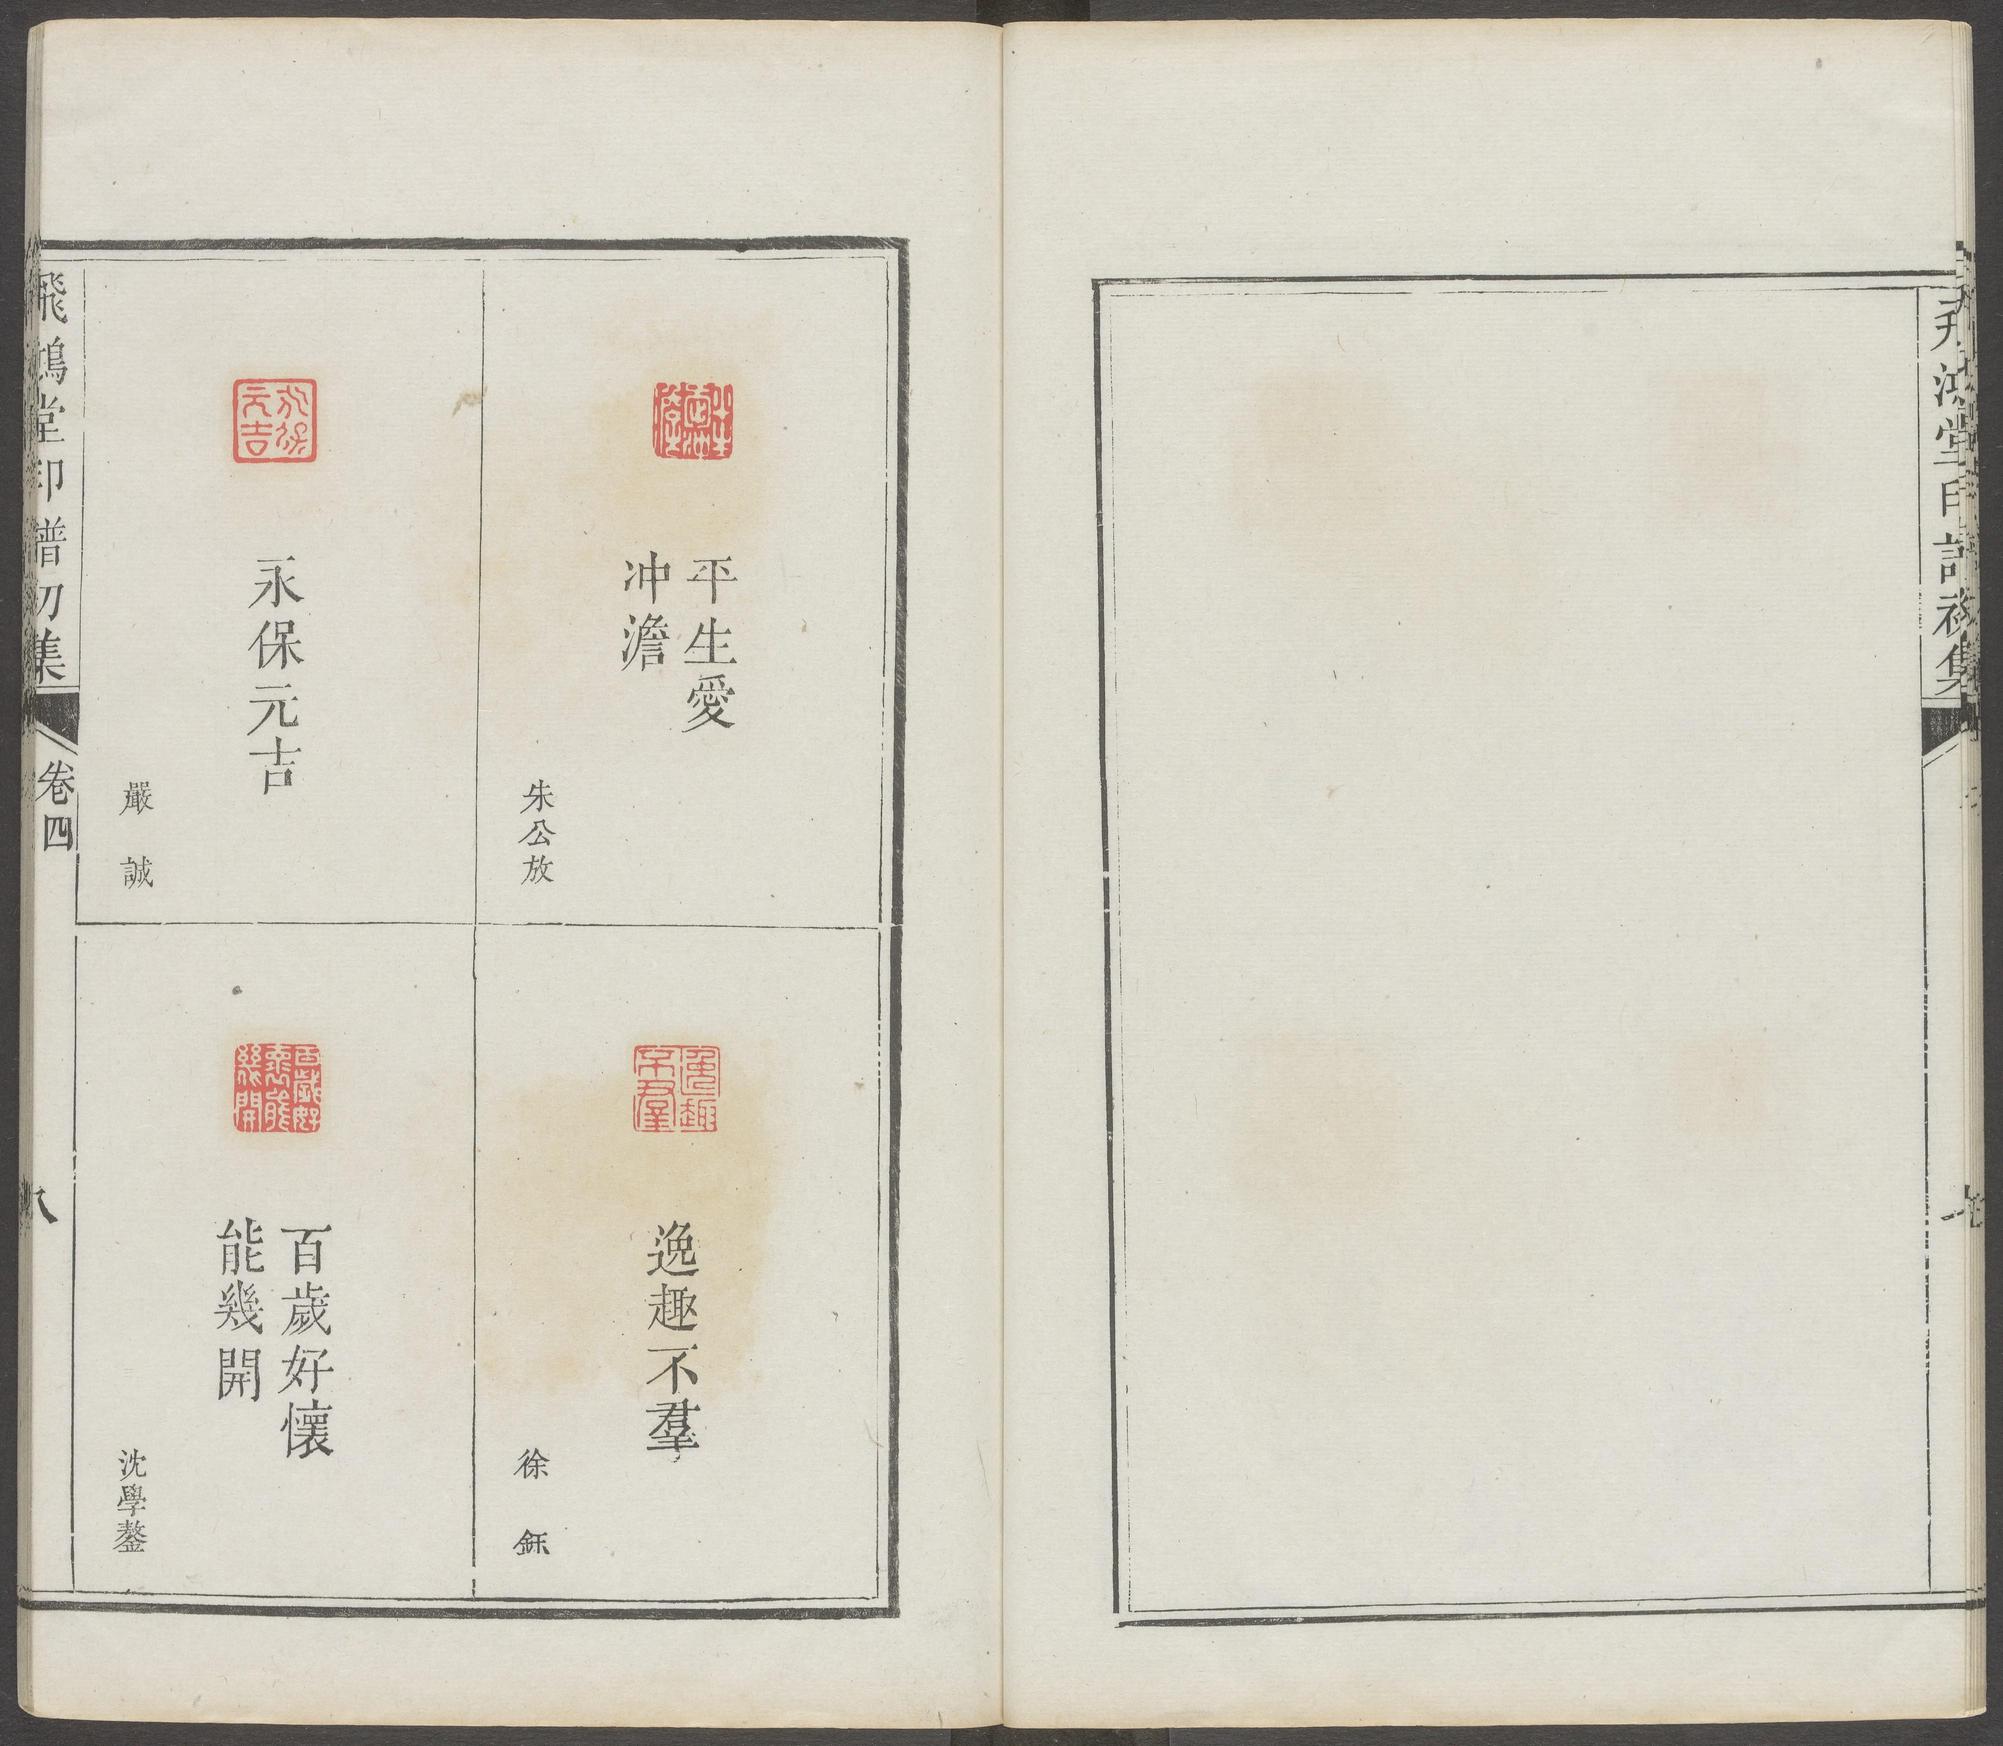 飛鴻堂印譜初集
平生愛
冲澹
朱公放
逸趣不羣
徐鈢
永保元吉
嚴誠
百歲好懷
能幾開
沈學鏊
飛鴻堂印譜初集
卷四
八